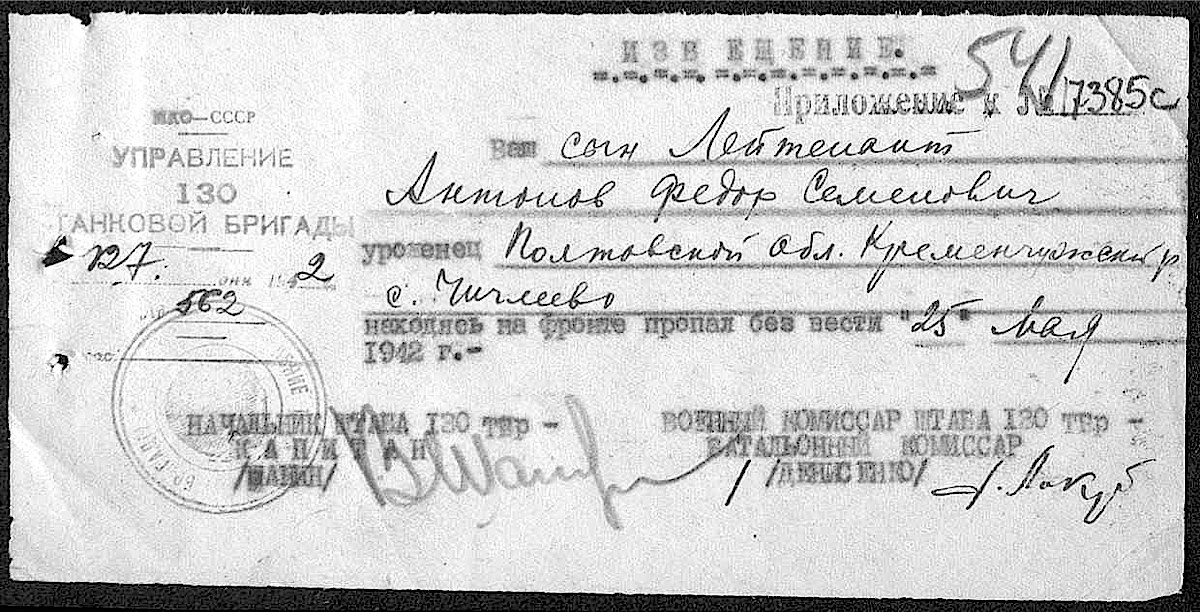 ИЗВЕЩЕНИЕ.
541
Приложение к № 17385с
НКО—СССР
УПРАВЛЕНИЕ
130
ТАНКОВОЙ БРИГАДЫ
27. 1942
№ 562
Ваш сын Лейтенант
Антонов Федор Семенович
уроженец Полтовской обл. Кременчужский р
с. Чичлеево
находясь на фронте пропал без вести "25" Мая
1942 г.-
НАЧАЛЬНИК ШТАБА 130 тбр -
КАПИТАН
/ШАНИН/
ВОЕННЫЙ КОМИССАР ШТАБА 130 тбр -
БАТАЛЬОННЫЙ КОМИССАР
/ДЕНИСЕНКО/